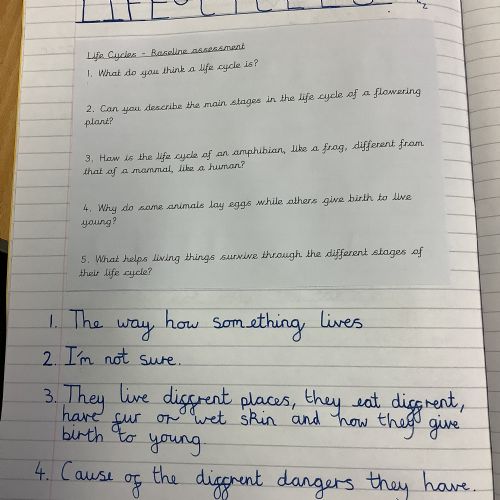 LIFE CYCLES
Life Cycles - Baseline assessment
1. What do you think a life cycle is?
2. Can you describe the main stages in the life cycle of a flowering
plant?
3. How is the life cycle of an amphibian, like a frog, different from
that of a mammal, like a human?
4. Why do some animals lay eggs while others give birth to live
young?
5. What helps living things survive through the different stages of
their life cycle?
1. The way how something lives
2. I'm not sure.
3. They live diffrent places, they eat diffrent,
have fur or wet skin and how they give
birth to young.
4. Cause of the diffrent dangers they have.